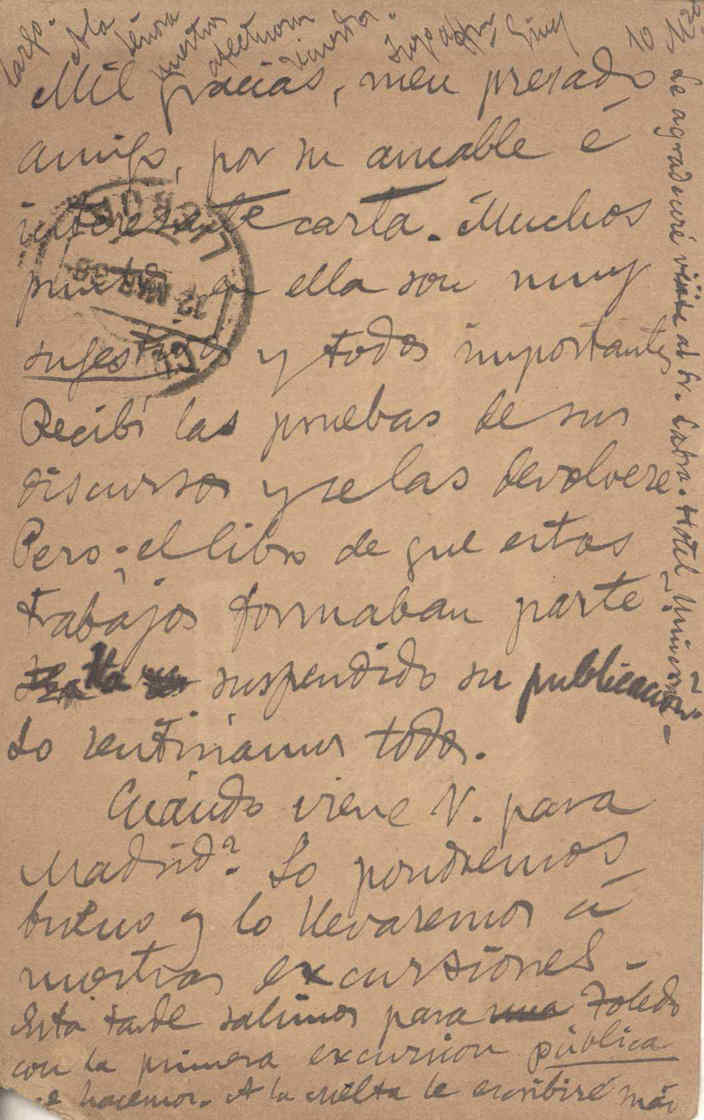 Mil gracias, meu presado
amigo, por su amable é
interesante carta. Muchos
puntos en ella son muy
sugestivos y todos importantes
Recibí las pruebas de sus
discursos y se las devolveré
Pero ¿el libro de que estos
trabajos formaban parte
Ha suspendido su publicacion?
Lo sentiriamos todos.
Cuándo viene V. para
Madrid? Lo pondremos
bueno y lo llevaremos á
nuestras excursiones -
Esta tarde salimos para Toledo
con la primera excursion pública
e hacemos. A la vuelta le escribiré más
largo. A la
señora
nuestros
afectuosos
Giner
10
Le agradeceré visite al Sr. Labra. Hotel Univers
LISBOA
12 MAR